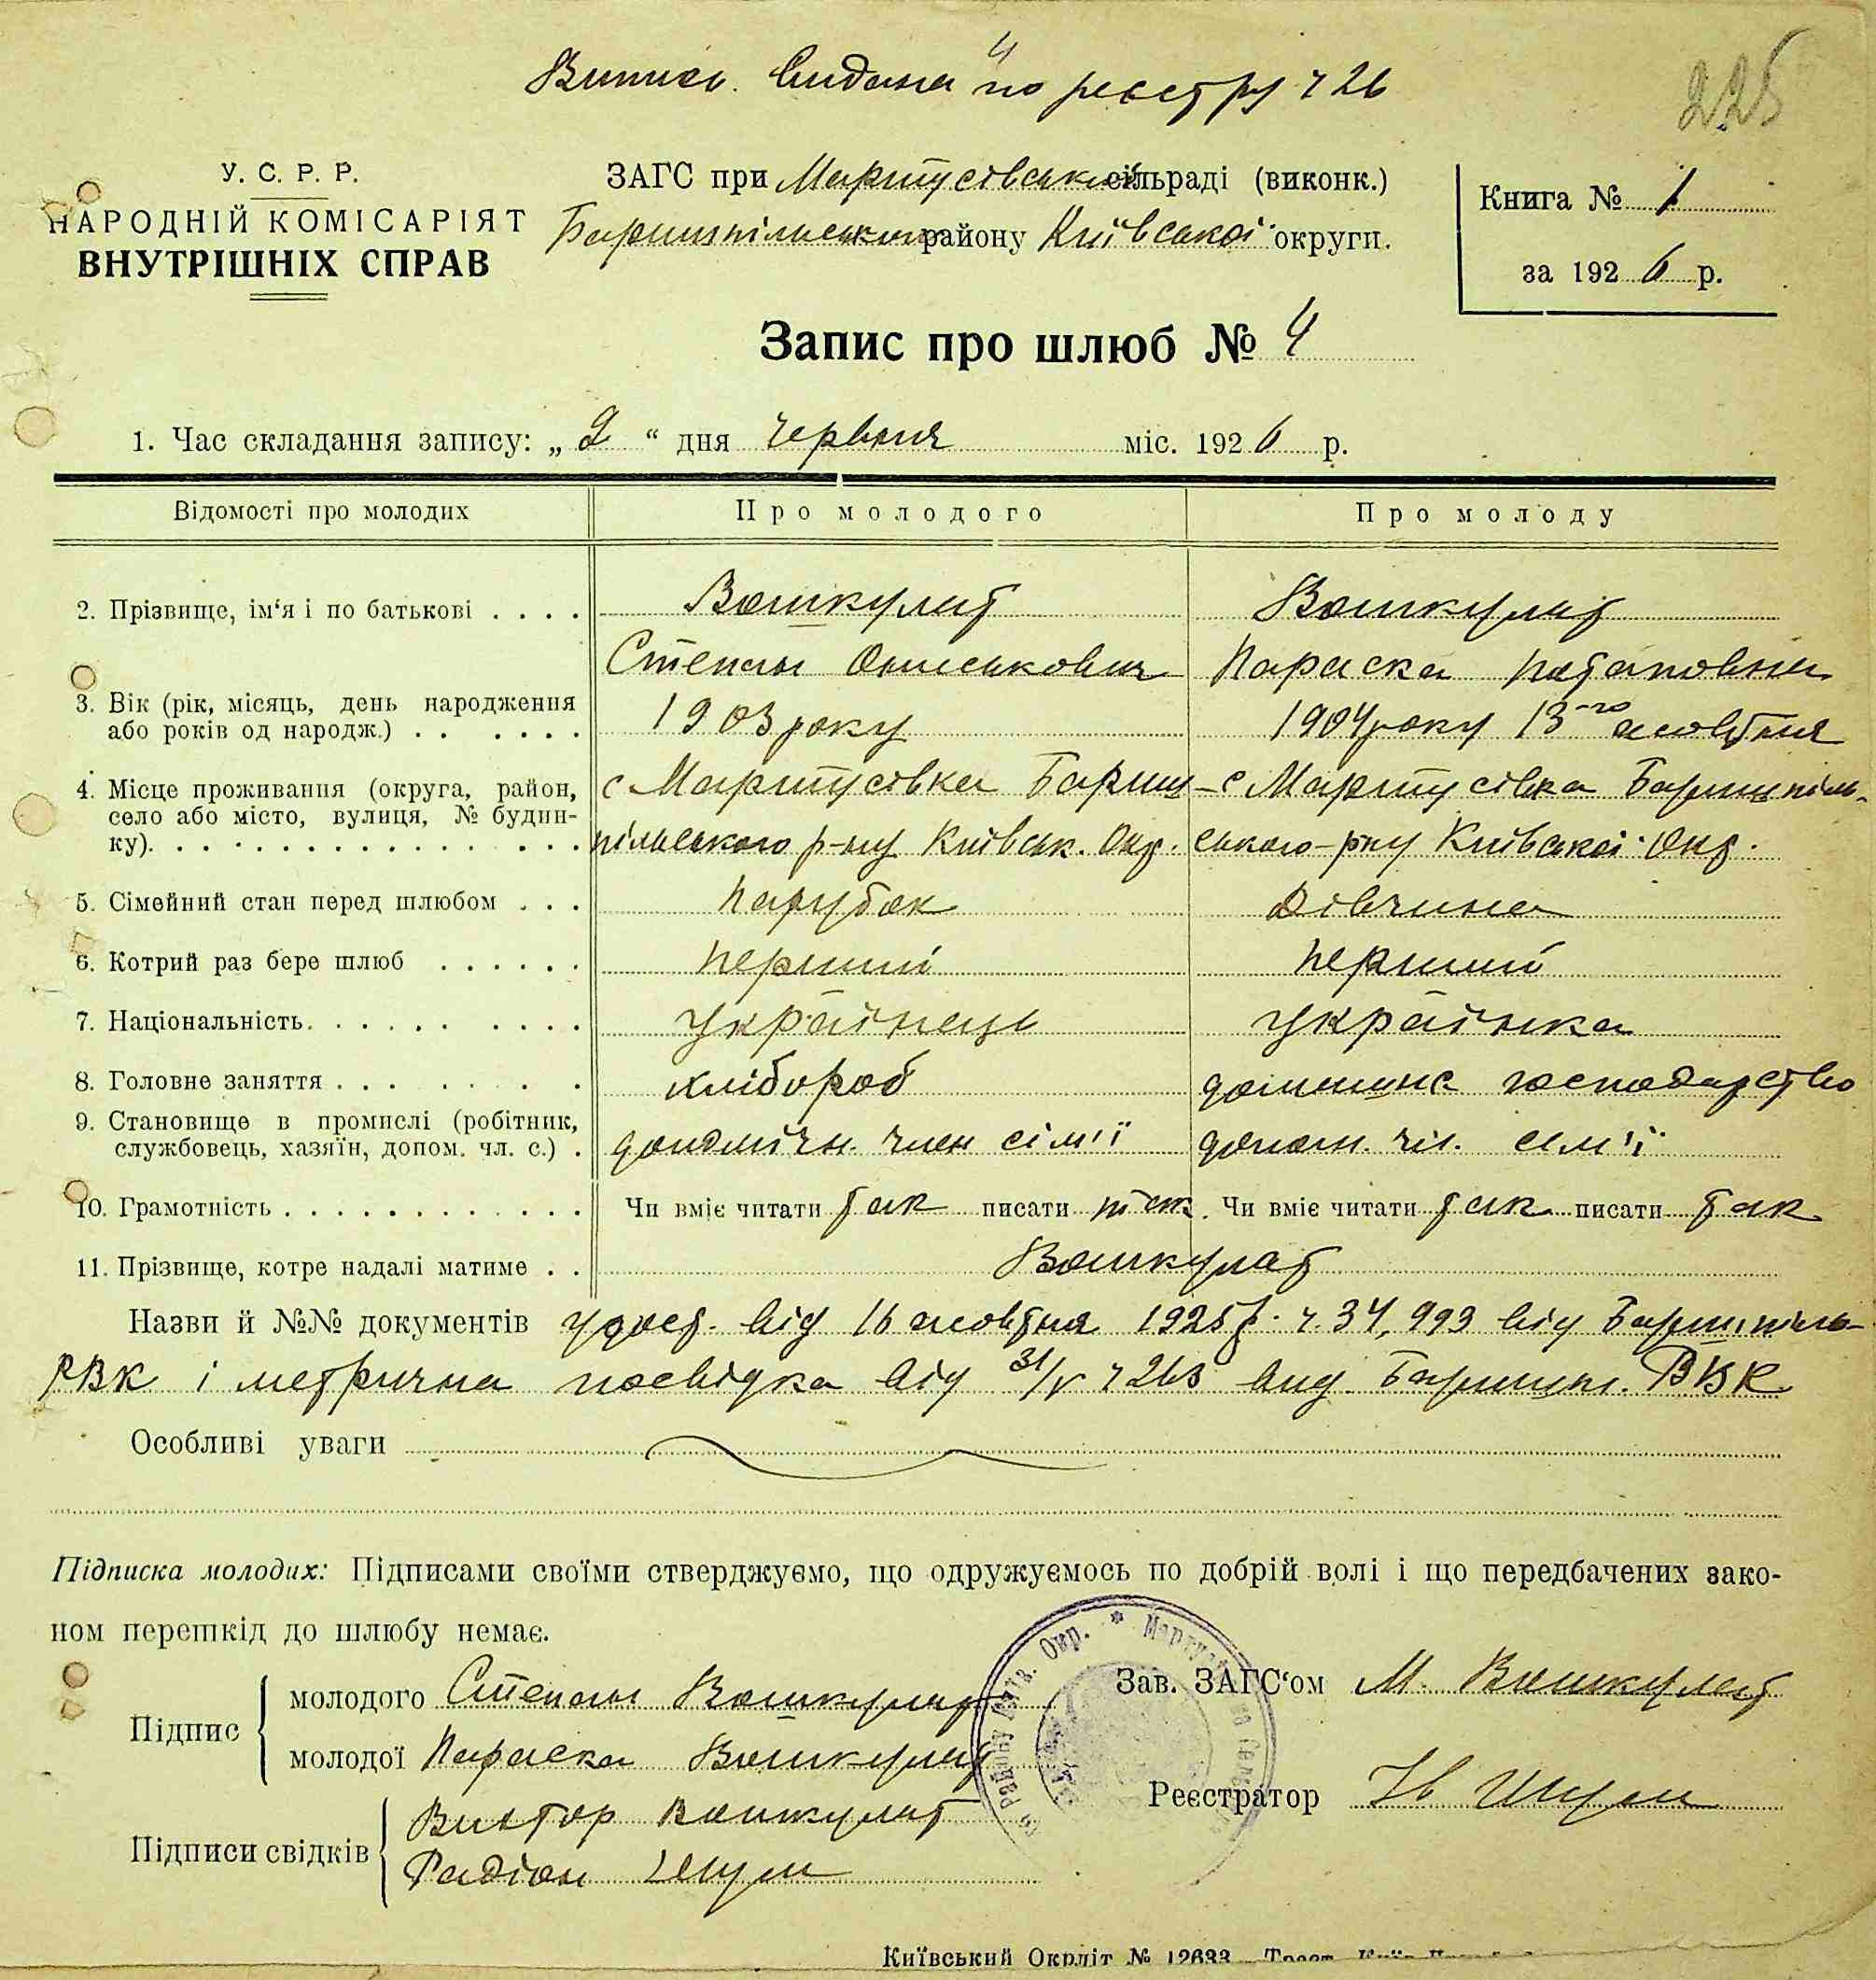 Випись. Видана по реєстру ч 26
225
У. С. Р. Р.
НАРОДНІЙ КОМІСАРІЯТ
ВНУТРІШНІХ СПРАВ
ЗАГС при Мартусівській сільраді (виконк.)
Баришпільського району Київської округи.
Книга № 1
за 1926 р.
Запис про шлюб № 4
1. Час складання запису: „2“ дня червня міс. 1926 р.
Відомості про молодих Про молодого Про молоду
2. Прізвище, ім‘я і по батькові . . . . Вашкулат Вашкулат
Степан Ониськович Параска Патаповна
3. Вік (рік, місяць, день народження або років од народж.) . . . . . . 1903 року 1904 року 13-го жовтня
4. Місце проживання (округа, район, село або місто, вулиця, № будинку). с Мартусівка Бариш- с Мартусівка Баришпіль-
пільського р-ну Київськ. Окр. ського р-ну Київської Окр.
5. Сімейний стан перед шлюбом . . . Парубок Дівчина
6. Котрий раз бере шлюб . . . . . . Перший Перший
7. Національність. . . . . . . . . . українець українка
8. Головне заняття . . . . . . . хлібороб домашнє господарство
9. Становище в промислі (робітник, службовець, хазяїн, допом. чл. с.) . член сім'ї допом. чл. сім'ї
10. Грамотність . . . . . . . . . . . . Чи вміє читати так писати так. Чи вміє читати так писати так
11. Прізвище, котре надалі матиме . . Вашкулат
Назви й №№ документів удост. від 16 жовтня 1925 р. ч. 34,993 від Баришпіль-
РВК і метрична посвідка від 31/V ч 263 вид. Баришпіл. РВК
Особливі уваги
Підписка молодих: Підписами своїми стверджуємо, що одружуємось по добрій волі і що передбачених зако-
ном перешкід до шлюбу немає.
Підпис
молодого Степан Вашкулат
молодої Параска Вашкулат
Підписи свідків
Виктор Вашкулат
Радіон Шум
Зав. ЗАГС‘ом М. Вашкулат
Реєстратор Ів Шум
Київський Окрліт № 12633